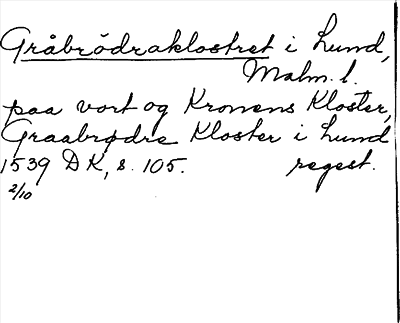 Gråbrödraklostret i Lund,
Malm. l.
paa vort og Kronens Kloster,
Graabrødre Kloster i Lund
1539 DK, s. 105. regest.
2/10